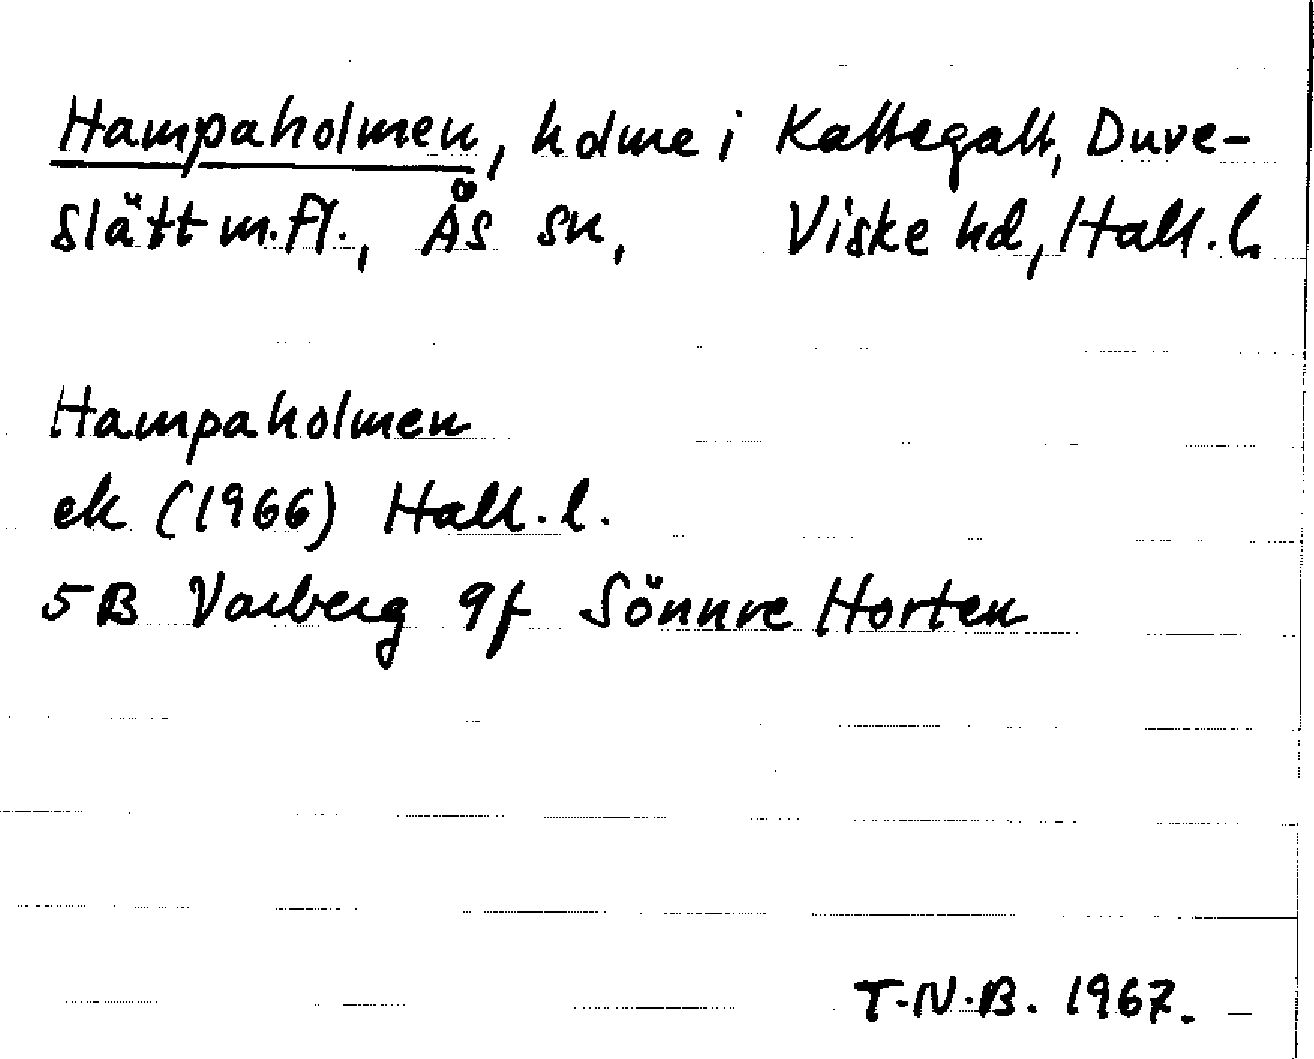 Hampaholmen, holme i Kattegatt, Duve-
slätt m.fl., Ås sn, Viske hd, Hall. l.
Hampaholmen
ek (1966) Hall. l.
5B Varberg 9f Sönnre Horten
T.N.B. 1967.